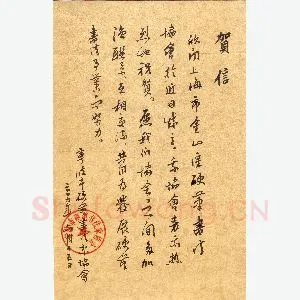 賀信
欣聞上海市金山區硬筆書法
協會於近日成立，我協會表示熱
烈的祝賀。愿我们協會之间多加
強聯系互相交流共同为發展硬筆
書法事業而努力。